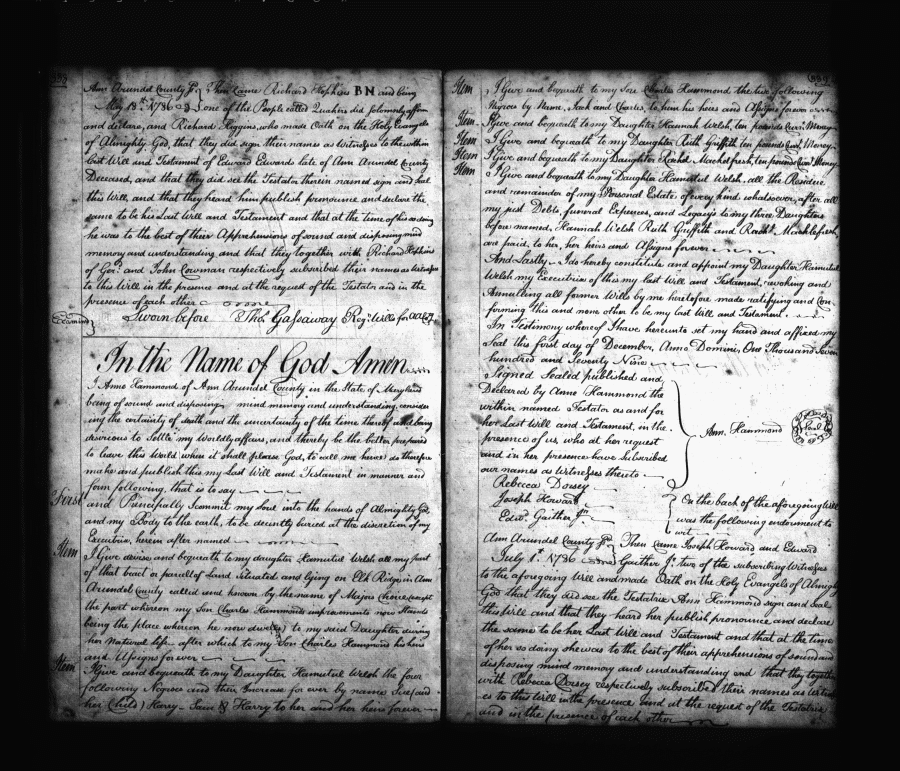 Ann Arundel County Ss. Then Came Richard Hopkins BN and being
May 13th 1786 one of the People called Quakers did solemnly affirm
and declare, and Richard Higgins, who made Oath on the Holy Evangels
of Almighty God, that they did sign their names as Witnesses to the within
last Will and Testament of Edward Edwards late of Ann Arundel County
Deceased, and that they did see the Testator therein named sign and seal
this Will, and that they heard him publish pronounce and declare the
same to be his Last Will and Testament and that at the time of his so doing
he was to the best of their Apprehensions of sound and disposing mind
memory and understanding and that they together with Richard Hopkins
of Ger: and John Cowman respectively subscribed their names as Witnesses
to this Will in the presence and at the request of the Testator and in the
presence of each other
Examined
Sworn before Tho. Gassaway Regr. Wills for AA Cy.
In the Name of God Amen
I Anne Hammond of Ann Arundel County in the State of Maryland
being of sound and disposing mind memory and understanding, consider
ing the certainty of death and the uncertainty of the time thereof and being
desireous to Settle my Worldly affairs, and thereby be the better prepared
to leave this World when it shall please God, to call me hence do therefore
make and publish this my Last Will and Testament in manner and
form following, that is to say
First
and Principally I commit my Soul into the hands of Almighty God
and my Body to the earth, to be decently buried at the discretion of my
Executrix, herein after named
Item
I Give devise and bequeath to my daughter Hamutiel Welsh all my part
of that tract or parcell of Land situated and lying on Elk Ridge in Ann
Arundel County called and known by the name of Majors Choice (except
the part whereon my Son Charles Hammonds improvements now stands
being the place wherein he now dwels) to my said Daughter during
her Natural life after which to my Son Charles Hammond his heirs
and Assigns forever
Item
I Give and bequeath to my Daughter Hamutiel Welsh the four
following Negroes and their Increase for ever by name (and
her Child) Harry Sam & Harry to her and her heirs forever
Item I Give and bequeath to my Son Charles Hammond the two following
Negroes by Name, Jack and Charles, to him his heirs and Assigns forever
Item I Give and bequeath to my Daughter Hannah Welsh, ten pounds Curt. Money.
Item I Give and bequeath to my Daughter Ruth Griffith ten pounds Curt. Money.
Item I Give and bequeath to my Daughter Rachel Mackelfresh, ten pounds Curt. Money.
Item I Give and bequeath to my Daughter Hamutiel Welsh, all the Residue
and remainder of my Personal Estate, of every kind whatsoever, after all
my just Debts, funeral Expences, and Legacys to my three Daughters
before named, Hannah Welsh Ruth Griffith and Rachl. Macklefresh
are paid, to her, her heirs and Assigns forever
And Lastly I do hereby constitute and appoint my Daughter Hamutiel
Welsh my Executrix of this my last Will and Testament, revoking and
Annulling all former Wills by me heretofore made ratifying and Con
firming this and none other to be my last Will and Testament.
In Testimony whereof I have hereunto set my hand and affixed my
Seal this first day of December, Anno Domini, One Thousand Seven
hundred and Seventy Nine
Signed Sealed published and
Declared by Anne Hammond the
within named Testator as and for
her Last Will and Testament, in the
presence of us, who at her request
and in her presence have Subscribed
our names as Witnesses thereto
Ann. Hammond Seal
Rebecca Dorsey
Joseph Howard
Edwd. Gaither Jr.
On the back of the aforegoing Will
was the following endorsment to
wit
Ann Arundel County Ss. Then Came Joseph Howard and Edward
July 1st 1786 Gaither Jr. two of the subscribing Witnesses
to the aforegoing Will and made Oath on the Holy Evangels of Almighty
God that they did see the Testatrix Ann Hammond sign and seal
this Will and that they heard her publish pronounce and declare
the same to be her Last Will and Testament and that at the time
of her so doing she was to the best of their apprehensions of sound and
disposing mind memory and understanding and that they together
with Rebecca Dorsey respectively subscribed their names as Witness
es to this Will in the presence and at the request of the Testatrix
and in the presence of each other